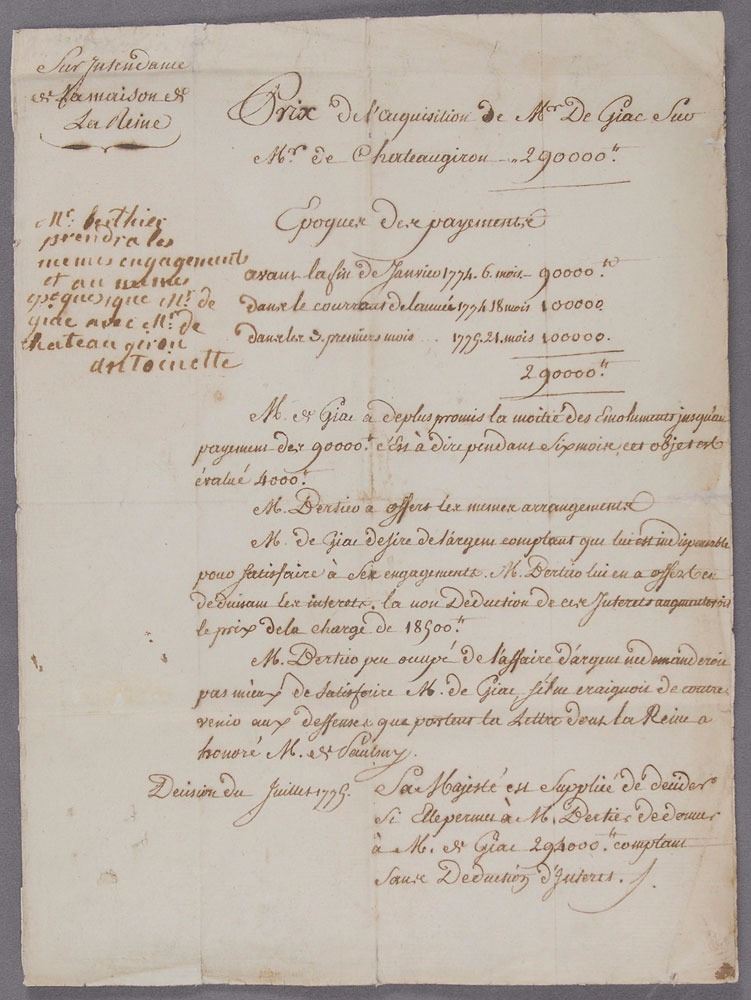 Sur Intendance
de La maison de
La Reine
Prix de l'acquisition de Mr. De Giac Sur
Mr. de Chateaugiron 290000.tt
Mr. berthier
prendra les
memes engagement
et au memes
epoques que Mr. de
giac avec Mr. de
chateau giron
antoinette
Epoques des payements
avant la fin de Janvier 1774. 6. mois 90000.tt
dans le courrant de l'année 1774 18 mois 100000
dans les 3. premiers mois .. 1775. 21. mois 100000.
290000.tt
M. de Giac a deplus promis la moitié des Emoluments jusqu'au
payement des 90000.tt c'Est à dire pendant Six mois, cet objet est
évalué 4000.tt
M. Bertier a offert les memes arrangements
M. de Giac desire de l'argent comptant que lui est indispensable
pour Satisfaire à Ses engagements. M. Bertier lui en a offert en
deduisant les interets. la non Deduction de ces Interets augmenteroit
le prix de la charge de 18500.tt
M. Bertier peu occupé de l'affaire d'argent ne demanderoit
pas mieux de Satisfaire M. de Giac, S'il ne craignoit de contre
venir aux deffenses que portent la Lettre dont la Reine a
honoré M. de Paulmy.
Decision du Juillet 1773.
Sa Majesté est Suppliée de decider
Si Elle permet à M. Bertier de donner
à M. de Giac 294000.tt comptant
Sans Deduction d'Interets.